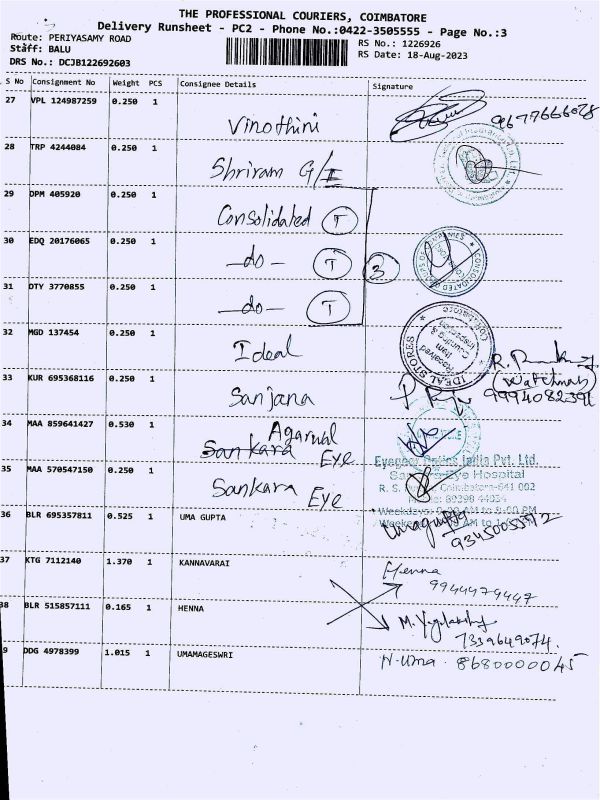 THE PROFESSIONAL COURIERS, COIMBATORE
Delivery Runsheet - PC2 - Phone No.:0422-3505555 - Page No.:3
Route: PERIYASAMY ROAD
RS No.: 1226926
Staff: BALU
RS Date: 18-Aug-2023
DRS No.: DCJB122692603
S No Consignment No Weight PCS Consignee Details Signature
27 VPL 124987259 0.250 1 Vinothini 9677666028
28 TRP 4244084 0.250 1 Shriram G/I
29 DPM 405920 0.250 1 Consolidated T
30 EDQ 20176065 0.250 1 -do- T 3
31 DTY 3770855 0.250 1 -do- T
32 MGD 137454 0.250 1 Ideal
IDEAL STORES
Received
Counting &
33 KUR 695368116 0.250 1 Sanjana
(Watchman)
9994082391
34 MAA 859641427 0.530 1 Sankara Eye
Agarwal
Eyegear Optics India Pvt. Ltd.
Sankara Eye Hospital
35 MAA 570547150 0.250 1 Sankara Eye
Coimbatore-641 002
36 BLR 695357811 0.525 1 UMA GUPTA Umagupta
37 KTG 7112140 1.370 1 KANNAVARAI Henna
9944479447
38 BLR 515857111 0.165 1 HENNA
7339649074.
9 DDG 4978399 1.015 1 UMAMAGESWRI N-Uma. 8680000045